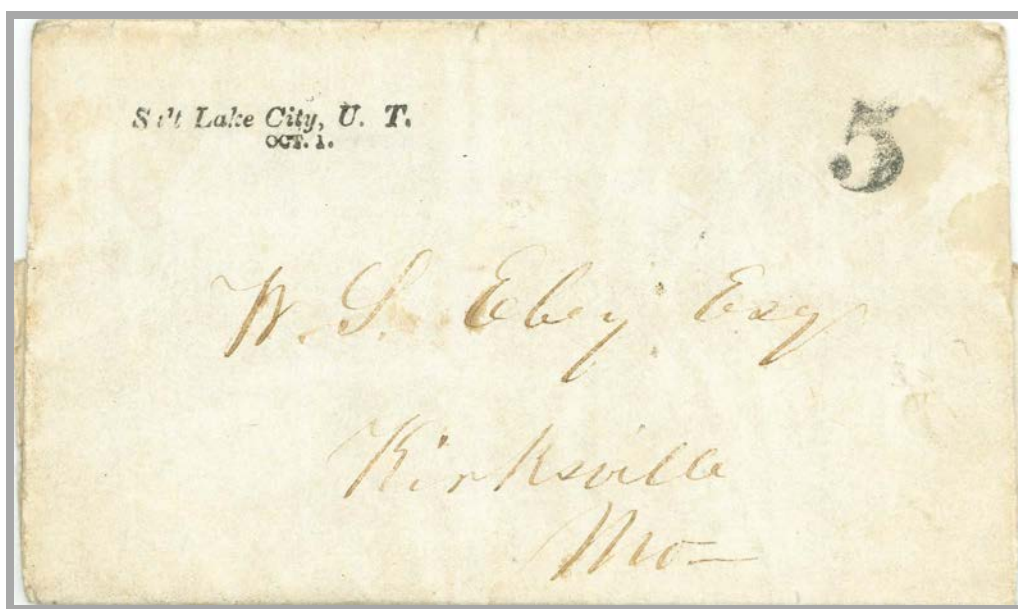 Salt Lake City, U. T.
OCT. 1.
5
W. S. Ebey Esq
Kirksville
Mo